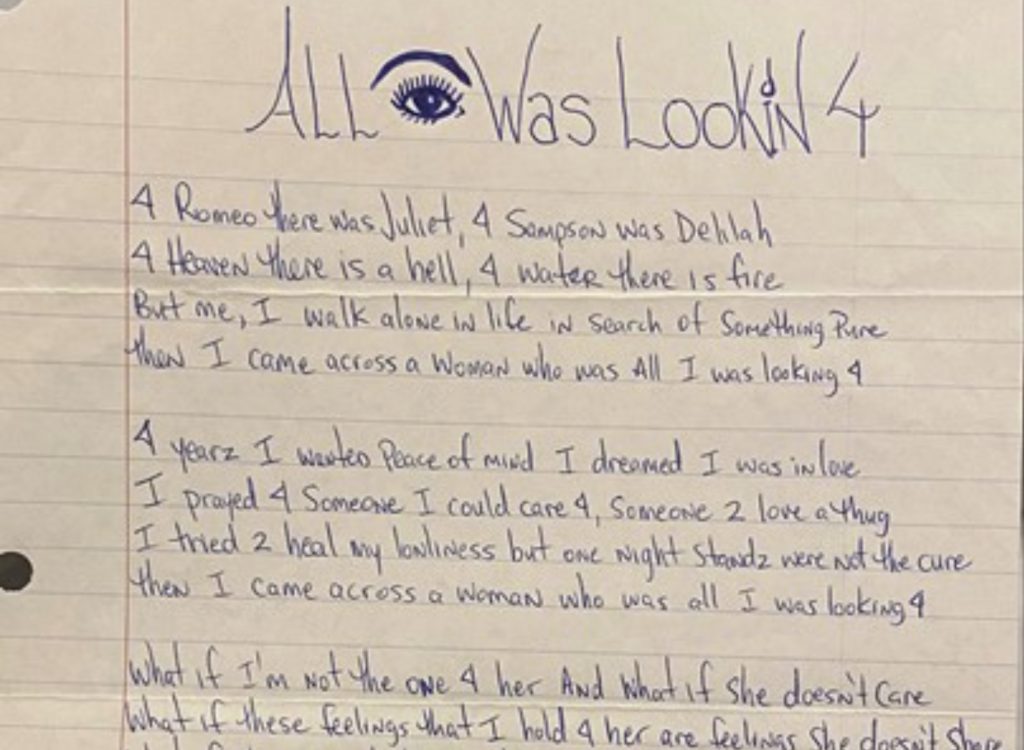 ALL 👁 Was LooKiN 4
4 Romeo there was Juliet, 4 Sampson was Dehlah
4 Heaven there is a hell, 4 water there is fire
But me, I walk alone in life in search of Something Pure
then I came across a Woman who was All I was looking 4
4 yearz I wanted Peace of mind I dreamed I was in love
I prayed 4 Someone I could care 4, Someone 2 love a thug
I tried 2 heal my lonliness but one night Standz were not the cure
then I came across a woman who was all I was looking 4
What if I'm not the one 4 her And What if She doesn't Care
What if these feelings that I hold 4 her are feelings She doesn't Share